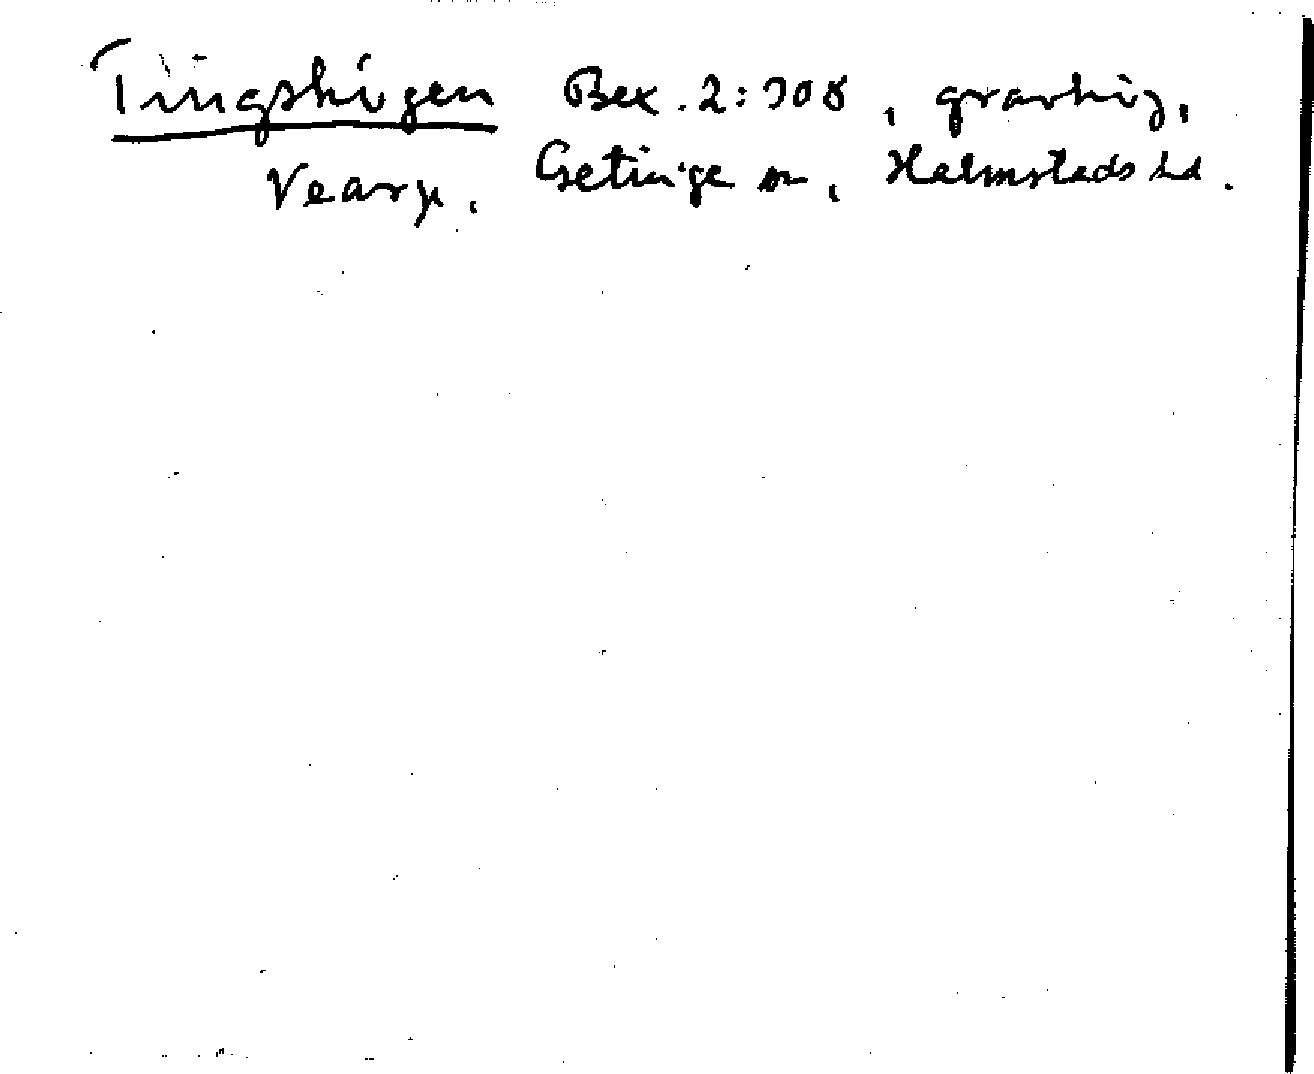 Tingshögen Bex. 2:308, gravhög,
Vearp. Getinge sn, Halmstads hd.